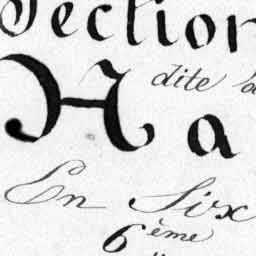 Section
dite
Ha
En Six
6ème